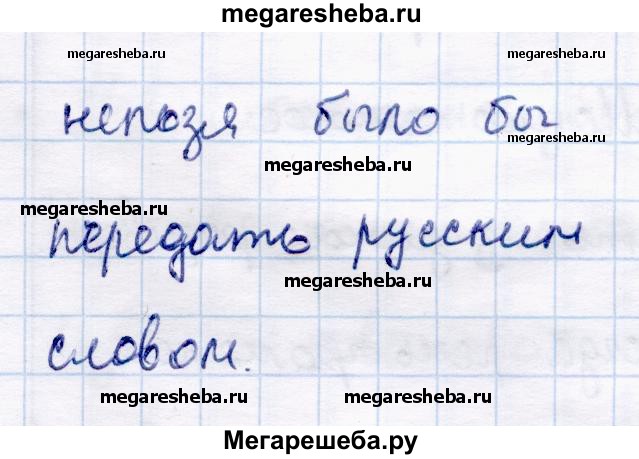 megaresheba.ru
megaresheba.ru
megaresheba.ru
нельзя было бы
megaresheba.ru
megaresheba.ru
megaresheba.ru
передать русским
megaresheba.ru
словом.
megaresheba.ru
megaresheba.ru
Мегарешеба.ру